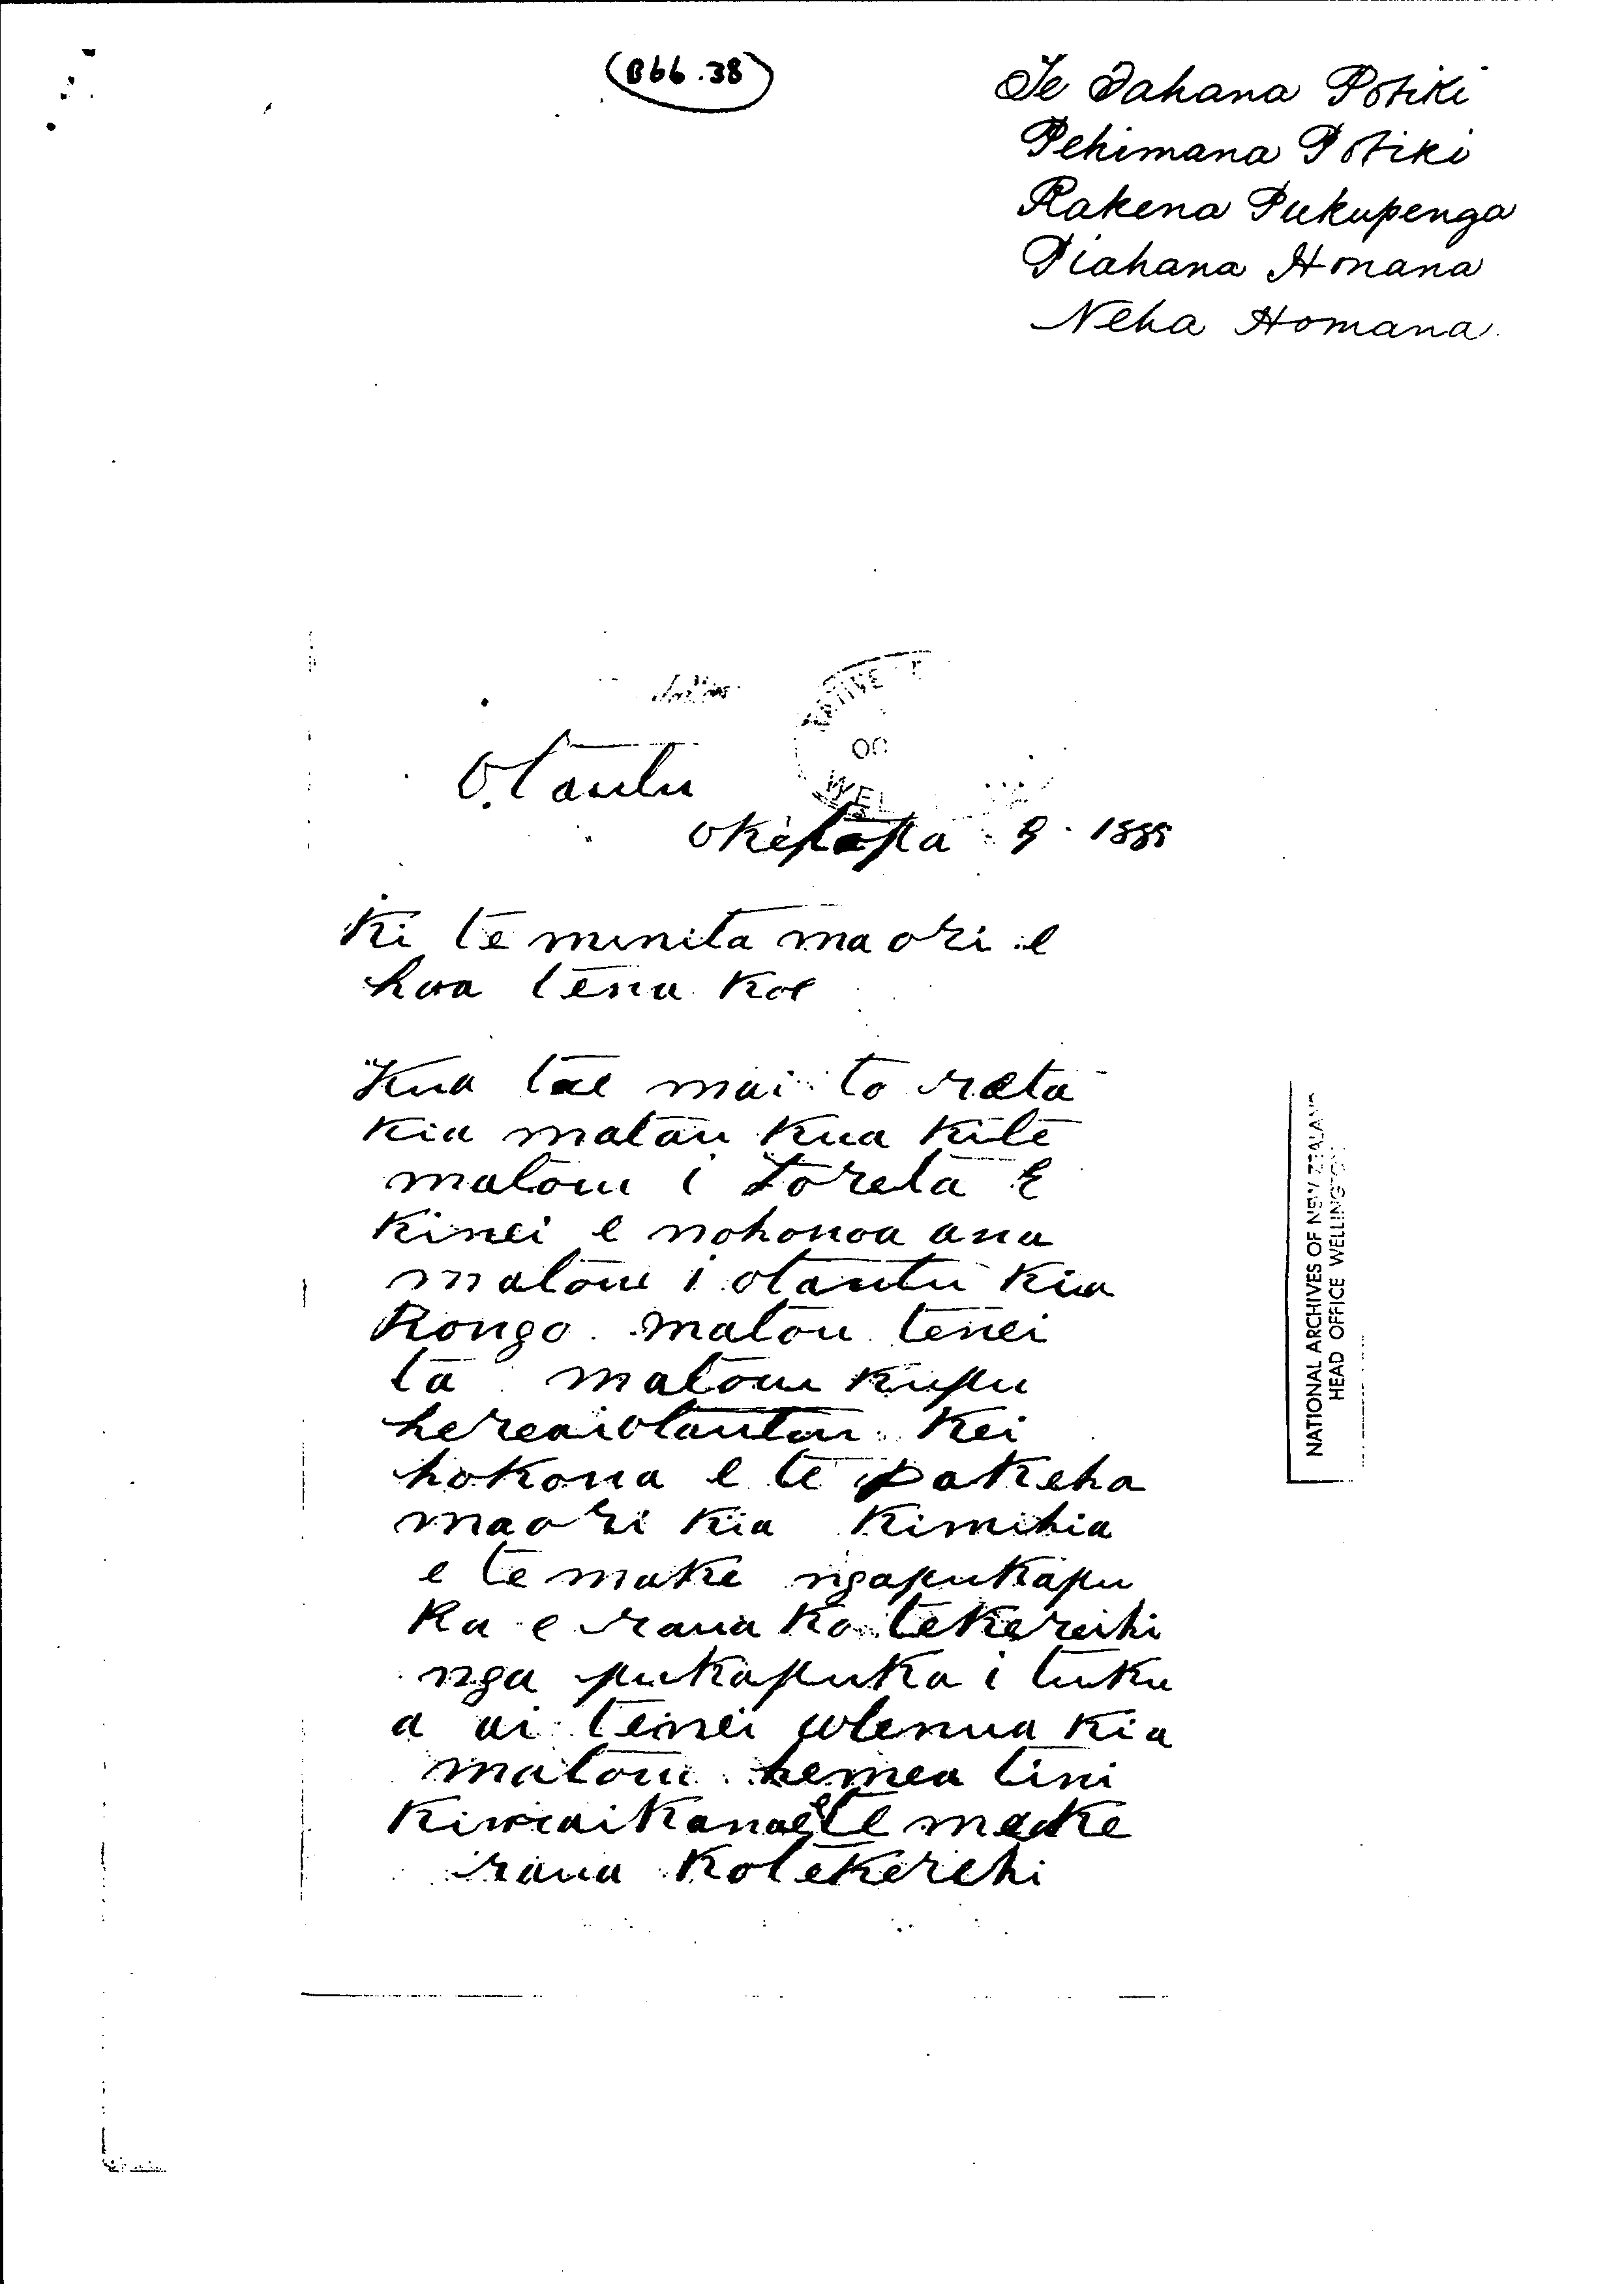 (B66.38)
Te Tahana Potiki
Pehimana Potiki
Rakena Pukupenga
Piahana Honana
Neha Homana.
NATIVE
OC
WEL
Otautu
Oketopa 9. 1885
Ki te minita maori e
hoa tena koe
Kua tae mai to reta
kia matou kua kite
matou i toreta E
kinei e nohonoa ana
matou i otautu kia
Rongo matou tenei
ta matou kupu
hereaiotautu kei
hokona e te pakeha
maori kia kimihia
e te make ngapukapu
ka e raua ko tekereihi
nga pukapuka i tuku
a ai teinei wenua kia
matou hemea tini
kiwaikanae e te make
raua kotekerehi
NATIONAL ARCHIVES OF NEW ZEALAND
HEAD OFFICE WELLINGTON